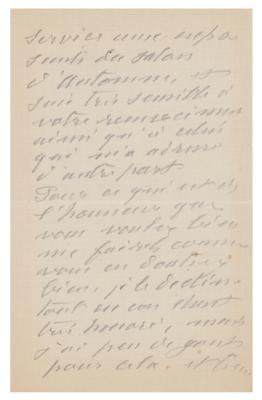 service aux expo
sants du salon
d'automne, et
suis très sensible à
votre remerciement
ainsi qu'à celui
qui m'a adressé
d'autre part
Pour ce qui est de
l'honneur que
vous voulez bien
me faire, comme
vous en doutez
bien, je le decline
tout en con étant
très honoré, mais
j'ai peu de gout
pour cela. et bien